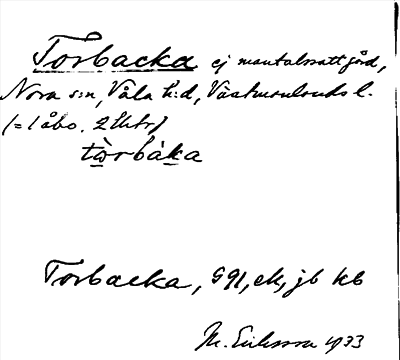 Torbacka ej mantalssatt jord,
Nora s:n, Våla h:d, Västmanlands l.
(= 1 åbo. 2 lhtr)
tòrbáka
Torbacka, G 91, ek, jb kb
M. Eriksson 1933